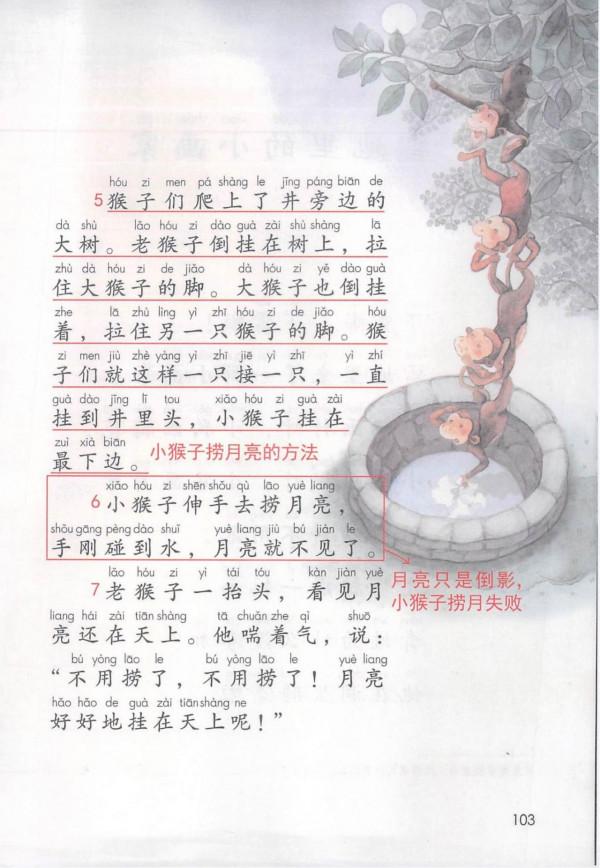 hóu zi men pá shàng le jǐng páng biān de
5 猴子们爬上了井旁边的
dà shù lǎo hóu zi dào guà zài shù shàng lā
大树。老猴子倒挂在树上，拉
zhù dà hóu zi de jiǎo dà hóu zi yě dào guà
住大猴子的脚。大猴子也倒挂
zhe lā zhù lìng yì zhī hóu zi de jiǎo hóu
着，拉住另一只猴子的脚。猴
zi men jiù zhè yàng yì zhī jiē yì zhī yì zhí
子们就这样一只接一只，一直
guà dào jǐng lǐ tou xiǎo hóu zi guà zài
挂到井里头，小猴子挂在
zuì xià biān
最下边。 小猴子捞月亮的方法
xiǎo hóu zi shēn shǒu qù lāo yuè liang
6 小猴子伸手去捞月亮，
shǒu gāng pèng dào shuǐ yuè liang jiù bú jiàn le
手刚碰到水，月亮就不见了。
月亮只是倒影，
小猴子捞月失败
lǎo hóu zi yì tái tóu kàn jiàn yuè
7 老猴子一抬头，看见月
liang hái zài tiān shàng tā chuǎn zhe qì shuō
亮还在天上。他喘着气，说：
bú yòng lāo le bú yòng lāo le yuè liang
“不用捞了，不用捞了！月亮
hǎo hǎo de guà zài tiān shàng ne
好好地挂在天上呢！”
103